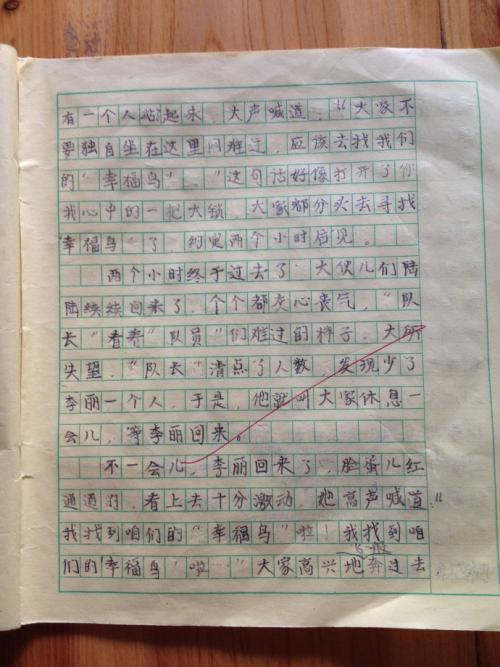 有一个人站起来，大声喊道：“大家不
要独自坐在这里闷难过，应该去找我们
的“幸福鸟”。”这句话好像打开了你
我心中的一把大锁，大家都分头去寻找
“幸福鸟”了，约定两个小时后见。
两个小时终于过去了，大伙儿们陆
陆续续回来了，个个都灰心丧气，“队
长”看着“队员”们难过的样子，大所
失望，“队长”清点了人数，发现少了
李丽一个人，于是，他就叫大家休息一
会儿，等李丽回来。
不一会儿，李丽回来了，脸蛋儿红
通通的，看上去十分激动，她高声喊道：“
我找到咱们的“幸福鸟”啦！我找到咱
们的“幸福鸟”啦！”大家高兴地奔过去，